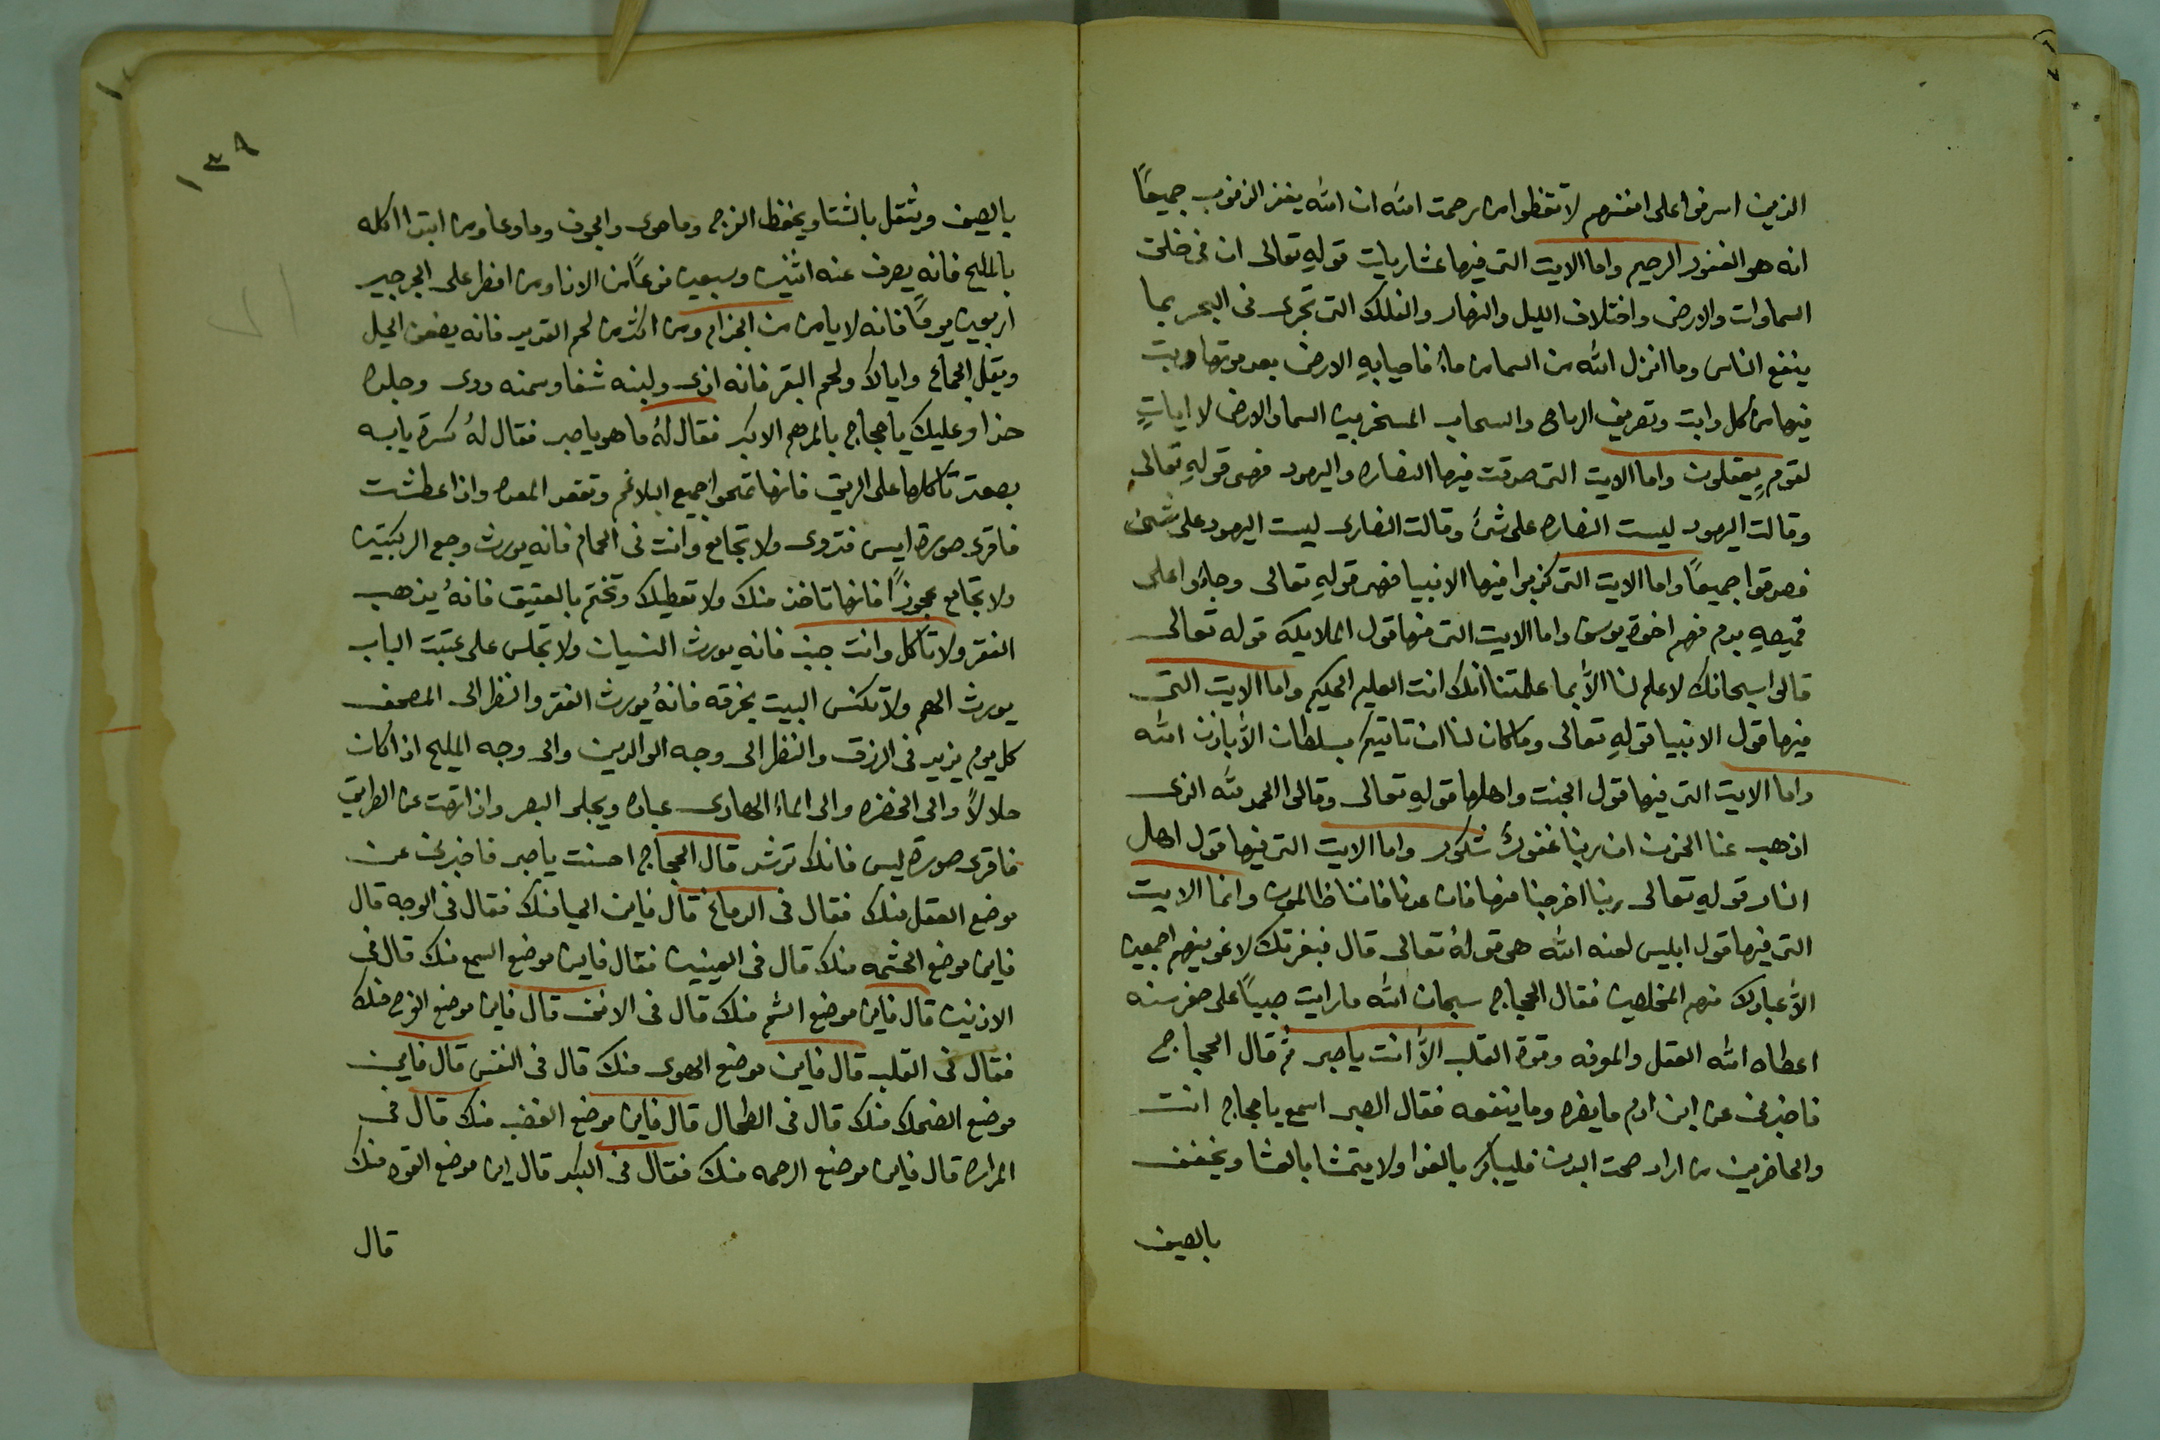 الذين اسرفوا على انفسهم لا تقنطوا من رحمت الله ان الله يغفر الذنوب جميعًا
انه هو الغفور الرحيم واما الايت التى فيها عشار يات قولهِ تعالى ان فى خلق
السماوات والارض واختلاف الليل والنهار والفلك التى تجرى فى البحر بما
ينفع الناس وما انزل الله من السما من ماءٍ فاحيا بهِ الارض بعد موتها وبت
فيها من كل دابت وتصريف الرياح والسحاب المسخر بين السما والارض لا اياتٍ
لقومٍ يعقلون واما الايت التى صدقت فيها النصاره واليهود فهى قولهِ تعالى
وقالت اليهود ليست النصاره على شئ وقالت النصارى ليست اليهود على شئ
فصدقوا جميعًا واما الايت التى كذبوا فيها الانبيا فهى قولهِ تعالى وجاؤا على
قميصهِ بدم فهم اخوة يوسف واما الايت التى فيها قول الملايكه قوله تعالى
قالوا سبحانك لا علم لنا الاَّ بما علمتنا انك انت العليم الحكيم واما الايت التى
فيها قول الانبيا قولهِ تعالى وما كان لنا ان ناتيكم بسلطان الاَّ باذن الله
واما الايت التى فيها قول الجنت واهلها قولهِ تعالى وقالوا الحمد لله الذى
اذهب عنا الحزن ان ربنا غفورٌ شكور واما الايت التى فيها قول اهل
النار قولهِ تعالى ربنا اخرجنا منها فان عدنا فاننا ظالمون واما الايت
التى فيها قول ابليس لعنه الله هى قولهُ تعالى قال فبعزتك لاغوينهم اجمعين
الاَّ عبادك منهم المخلصين فقال الحجاج سبحان الله ما رايت صبيًا على صغر سنه
اعطاه الله العقل والمعرفه وقوة القلب الاَّ انت يا صبى ثم قال الحجاج
فاخبرنى عن ابن ادم ما يضره وما ينفعه فقال الصبى اسمع يا حجاج انت
والحاضرين من اراد صحت البدن فليباكر بالغدا ولا يتمشا بالعشا ويخفف
بالصيف
١٣٩
بالصيف ويثقل بالشتا ويحفظ الفرج وما حوى والجوف وما وعا ومن ابتدا اكله
بالمليح فانه يصرف عنه اثنين وسبعين نوعًا من الاذا ومن افطر على الجرجير
اربعين يومًا فانه لا يامن من الجذام ومن اكثر من لحم القديد فانه يضعف الحيل
ويقل الجماع واياك ولحم البقر فانه اذى ولبنه شفا وسمنه دوى وجلده
حذا وعليك يا حجاج بالمرهم الاكبر فقال لهُ ما هو يا صبى فقال لهُ كسرة يابسه
بصعتر تاكلها على الريق فانها تمحوا جميع البلاغم وتقعد المعده واذا عطشت
فاقرى صورة ايس فتروى ولا تجامع وانت فى الحمام فانه يورث وجع الركبتين
ولا تجامع عجوزًا فانها تاخذ منك ولا تعطيك وتختم بالعقيق فانهُ يذهب
الفقر ولا تاكل وانت جنب فانه يورث النسيان ولا تجلس على عتبت الباب
يورث الهم ولا تكنس البيت بخرقه فانهُ يورث الفقر والنظر الى المصحف
كل يوم يزيد فى الرزق والنظر الى وجه الوالدين والى وجه المليح اذا كان
حلالاً والى الخضره والى الماءِ الهادى عباده ويجلى البصر واذا تهت عن الطريق
فاقرى صورة يس فانك ترشد قال الحجاج احسنت يا صبى فاخبرنى عن
موضع العقل منك فقال فى الدماغ قال فاين الحيا منك فقال فى الوجه قال
فاين موضع الحشمه منك قال فى العينين فقال فاين موضع السمع منك قال فى
الاذنين قال فاين موضع الشم منك قال فى الانف قال فاين موضع الفرح منك
فقال فى القلب قال فاين موضع الهوى منك قال فى النفس قال فاين
موضع الضحك منك قال فى الطحال قال فاين موضع الغضب منك قال فى
المراره قال فاين موضع الرحمه منك فقال فى الكبد قال اين موضع القوه منك
قال